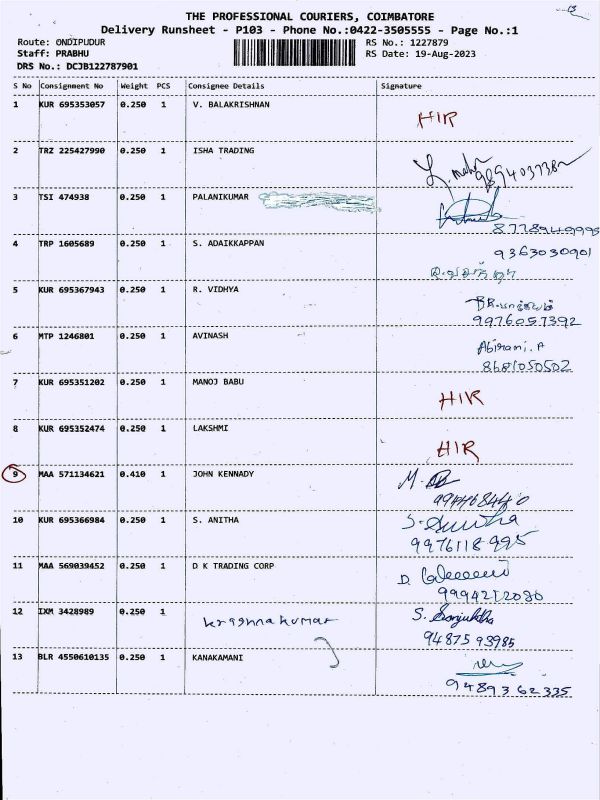 13
THE PROFESSIONAL COURIERS, COIMBATORE
Delivery Runsheet - P103 - Phone No.:0422-3505555 - Page No.:1
Route: ONDIPUDUR RS No.: 1227879
Staff: PRABHU RS Date: 19-Aug-2023
DRS No.: DCJB122787901
S No Consignment No Weight PCS Consignee Details Signature
1 KUR 695353057 0.250 1 V. BALAKRISHNAN HIR
2 TRZ 225427990 0.250 1 ISHA TRADING
3 TSI 474938 0.250 1 PALANIKUMAR
4 TRP 1605689 0.250 1 S. ADAIKKAPPAN 9363030901
5 KUR 695367943 0.250 1 R. VIDHYA
9976057392
6 MTP 1246801 0.250 1 AVINASH Abirami. A
8681050502
7 KUR 695351202 0.250 1 MANOJ BABU HIR
8 KUR 695352474 0.250 1 LAKSHMI HIR
9 MAA 571134621 0.410 1 JOHN KENNADY
10 KUR 695366984 0.250 1 S. ANITHA S. Anitha
9976118995
11 MAA 569039452 0.250 1 D K TRADING CORP
12 IXM 3428989 0.250 1 krishnakumar S. Sanjuktha
9487593985
13 BLR 4550610135 0.250 1 KANAKAMANI
9489362335